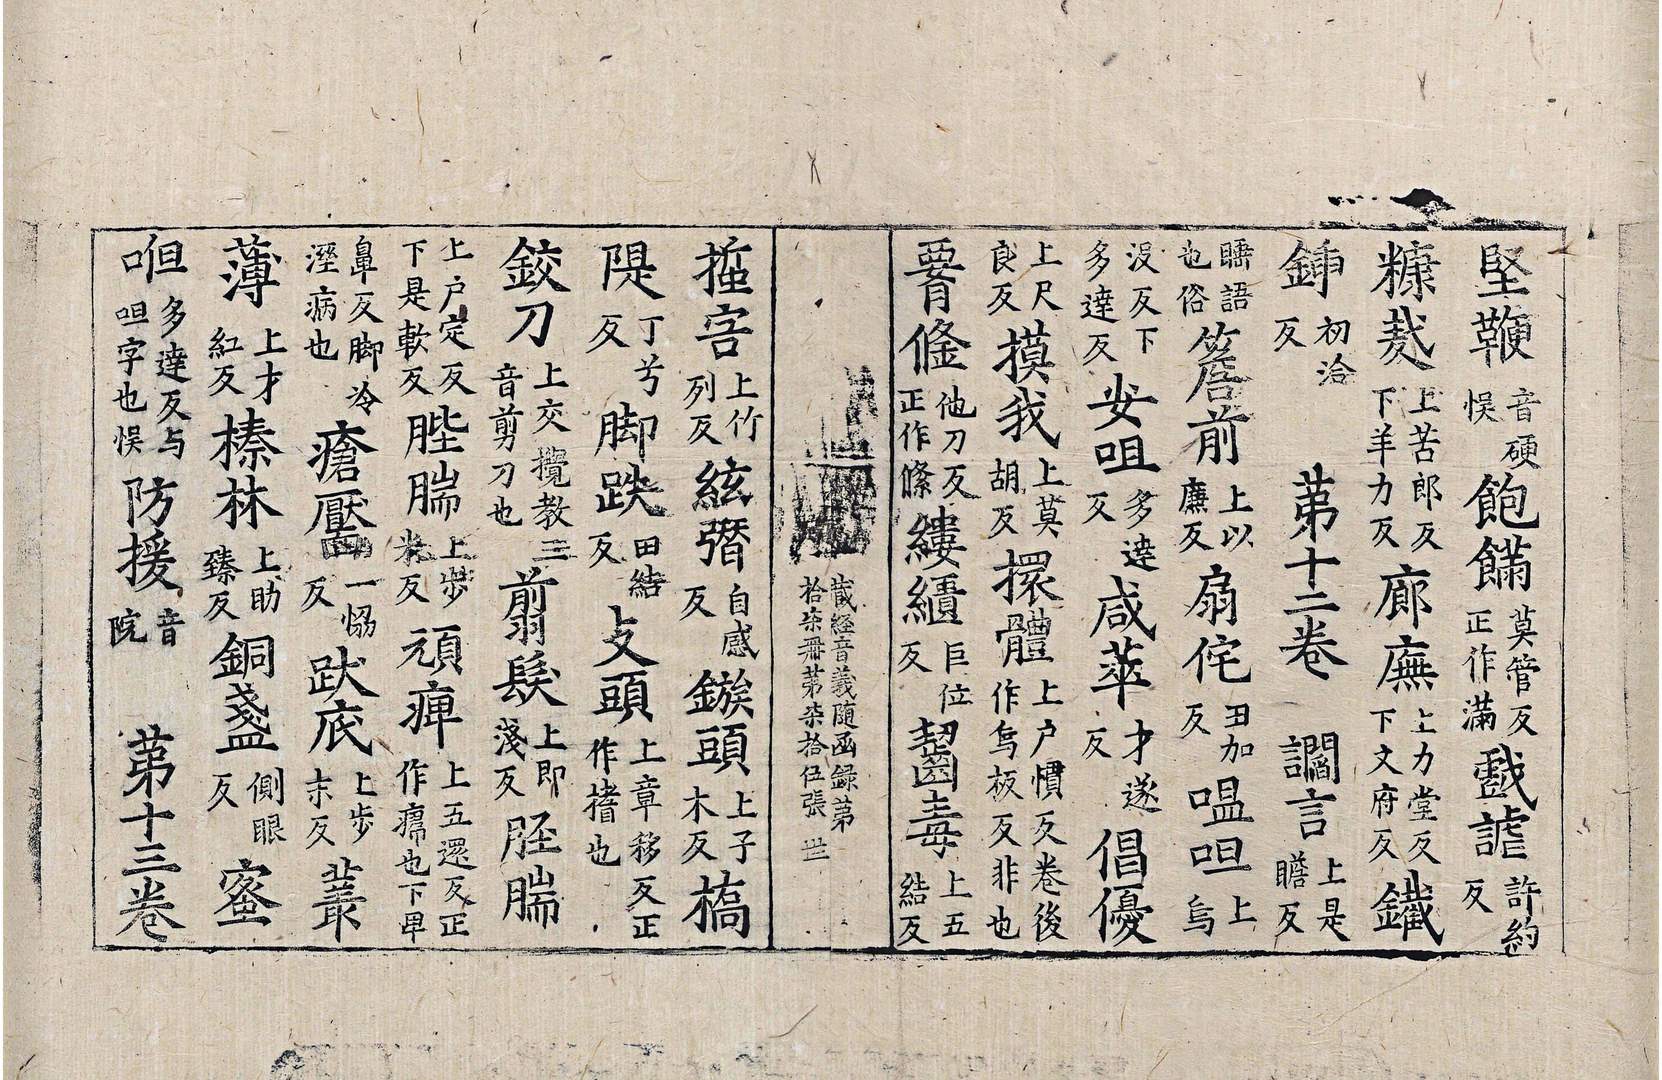 堅鞕音硬悮飽䭚莫管反正作滿戲謔許約反
糠麩上苦郎反下羊力反廊廡上力堂反下文府反鐵
鍤初洽反 苐十二卷 讇言上是瞻反
睡語也俗簷前上以廉反扇侘丑加反嗢呾上烏
没反下多達反妛咀多達反咸萃才遂反倡優
上尺良反摸我上莫胡反擐體上户慣反卷後作烏板反非也
𦝫絛他刀反正作絛縷繢巨位反齧毒上五結反
藏経音義随函録第拾柒冊苐柒拾伍張 世
蜇吝上竹列反絃㬱自感反鏃頭上子木反槁
隄丁兮反脚跌田結反支頭上章移反正作搘也
鉸刀上交攪教三音剪刀也翦髮上即淺反胫腨
上户定反下是軟反䏶腨上步米反頑痺上五還反正作㾪也下卑
鼻反脚冷溼病也瘡壓一恊反跋底上步末反叢
薄上才紅反榛林上助臻反銅盞側眼反蜜
呾多達反与呾字也悮防援音院 苐十三卷